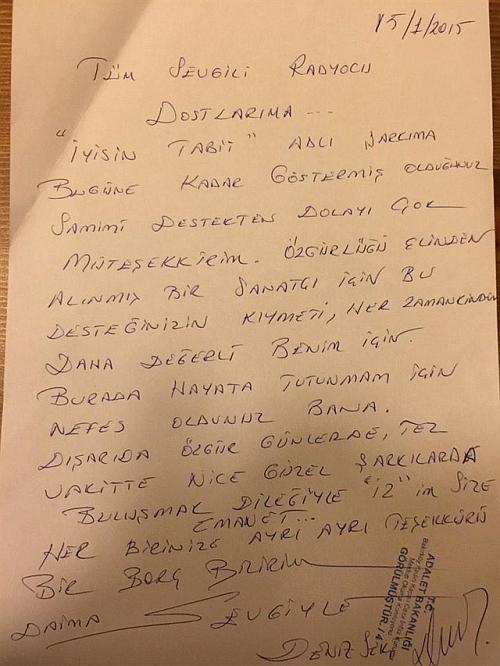 15/1/2015
TÜM SEVGİLİ RADYOCU
DOSTLARIMA ...
"İYİSİN TABİİ" ADLI ŞARKIMA
BUGÜNE KADAR GÖSTERMİŞ OLDUĞUNUZ
SAMİMİ DESTEKTEN DOLAYI ÇOK
MÜTEŞEKKİRİM. ÖZGÜRLÜĞÜ ELİNDEN
ALINMIŞ BİR SANATÇI İÇİN BU
DESTEĞİNİZİN KIYMETİ, HER ZAMANKİNDEN
DAHA DEĞERLİ BENİM İÇİN.
BURADA HAYATA TUTUNMAM İÇİN
NEFES OLDUNUZ BANA.
DIŞARIDA ÖZGÜR GÜNLERDE, TEZ
VAKİTTE NİCE GÜZEL ŞARKILARDA
BULUŞMAK DİLEĞİYLE "İZ" İM SİZE
EMANET...
HER BİRİNİZE AYRI AYRI TEŞEKKÜRÜ
BİR BORÇ BİLİRİM
DAİMA SEVGİYLE
DENİZ SEKİ
T.C.
ADALET BAKANLIĞI
GÖRÜLMÜŞTÜR.